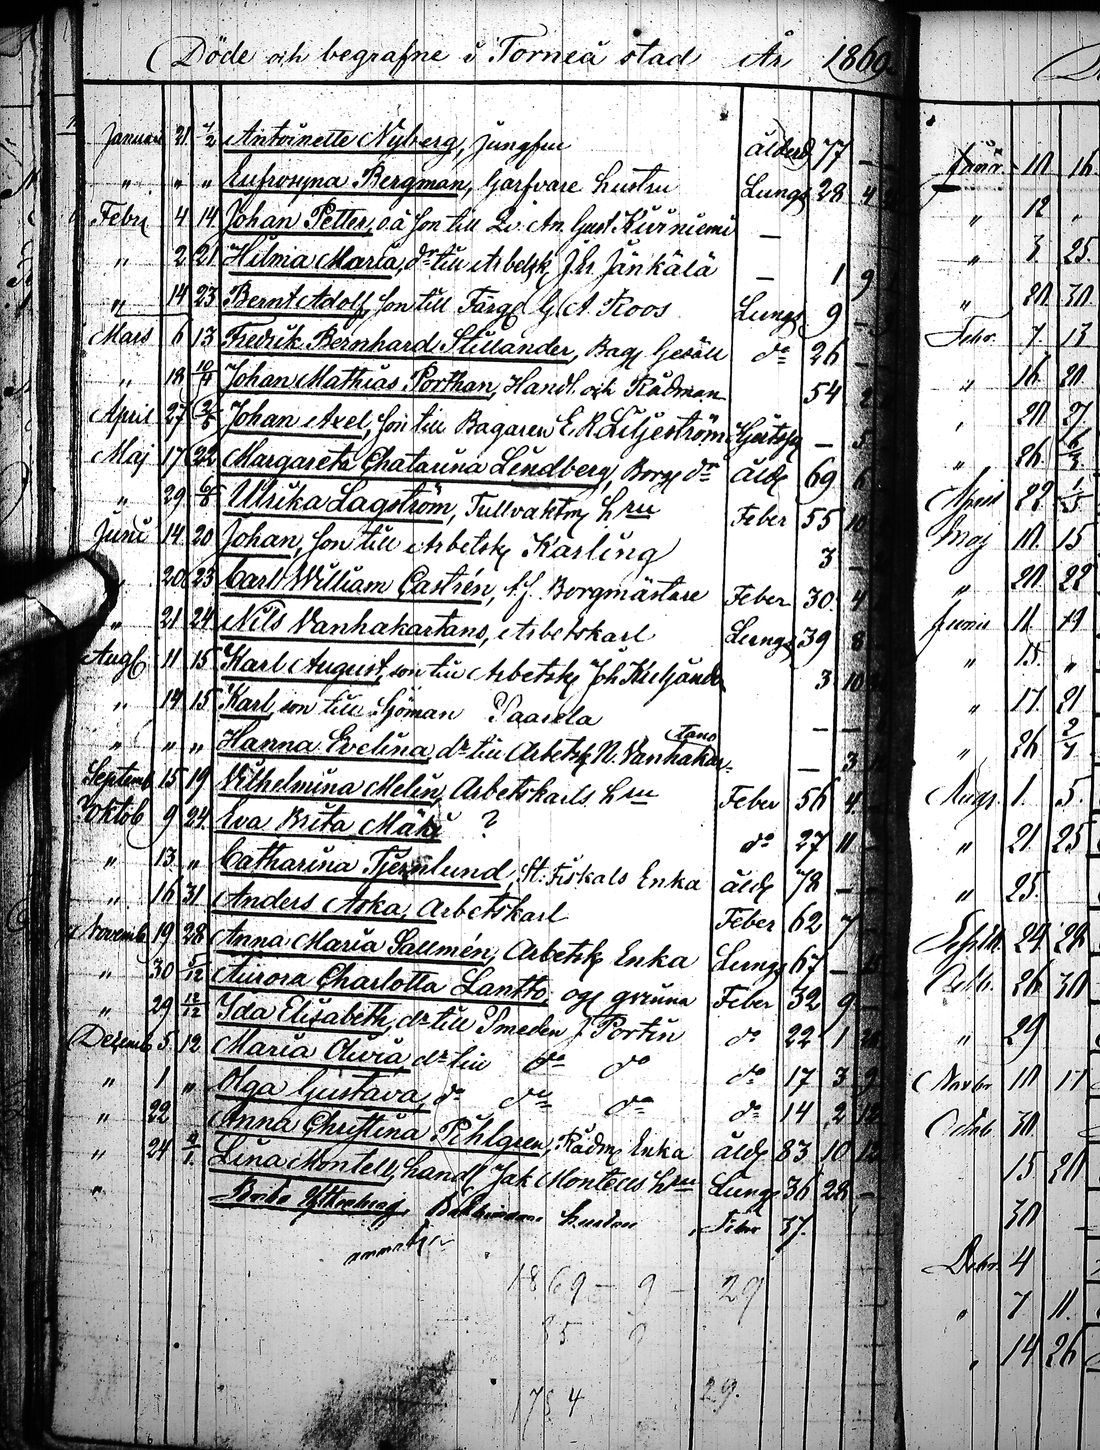 Döde och begrafne i Torneå stad År 1869.
Januari 21 7/2 Antoinette Nyberg, Jungfru ålderd 77 —
" " " Eufrosyna Bergman, Garfvare hustru Lungs 28 4
Febru 4 14 Johan Petter, o.ä son till Kurniemi —
" 2 21 Hilma Maria, dr till Arbetsk J. Jänkälä — 1 9
" 14 23 Bernt Adolf, son till Färg G. A. Roos Lungs 9 —
Mars 6 13 Fredrik Bernhard Stillander, Bag Gesäll do 26 —
" 18 Johan Mathias Porthan, Handl. och Rådman 54 2
April 27 2/5 Johan Axel, son till Bagaren E. R. Liljeström — 5
Maj 17 22 Margareta Chatarina Lindberg, Borg dr åld 69 6
" 29 6/6 Ulrika Lagström, Tullvaktm hru Feber 55 10
Juni 14 20 Johan, son till Arbetsk Karling 3 —
" 20 23 Carl William Castrén, t.f. Borgmästare Feber 30 4
" 21 24 Nils Vanhakartano, Arbetskarl Lungs 39 8
Aug 11 15 Karl August, son till Arbetsk Joh 3 10
" 14 15 Karl, son till Sjöman Paasela — —
" " " Hanna Evelina, dr till Arbetsk N. Vanhakartano — 3
Septemb 15 19 Vilhelmina Melin, Arbetskarls hru Feber 56 4
Oktob 9 24 Eva Brita Mäki ? do 27 11
" 13 " Catharina Tjernlund, St. Fiskals Enka åld 78 — —
" 16 31 Anders Aska, Arbetskarl Feber 62 7
Novemb 19 28 Anna Maria Sallmén, Arbetsk Enka Lungs 67 —
" 30 5/12 Aurora Charlotta Lantto, og qvinna Feber 32 9 —
" 29 12/12 Ida Elisabeth, dr till Smeden J. Portin do 22 1 20
Decemb 5 12 Maria Olivia dr till do do do 17 3 9
" 1 " Olga Gustava, dr do do do 14 2 12
" 22 Anna Christina Pihlgren, Rådm Enka åld 83 10 12
" 24 9/1 Lina Montell, handl Jak Montells hru Lungs 36 28 —
" Brita hustru Feber 37.
1869 - 9 - 29
85 9
1784 29.
Janr 10 16.
" 12 "
" 3 25.
" 20 30
Febr. 7. 13
" 16 20
" 20 27
" 26 6/3
April 22 1/5
Maj 10. 15
" 20 22
Junii 11 19
" 15. "
" 17. 21
" 26 2/7
Augs. 1. 5.
" 21 25
" 25.
Septbr. 24 28
Octbr. 26 30
" 29
Novbr 10 17
Octbr 30
15 20
30
Decbr. 4
" 7 11.
" 14 26